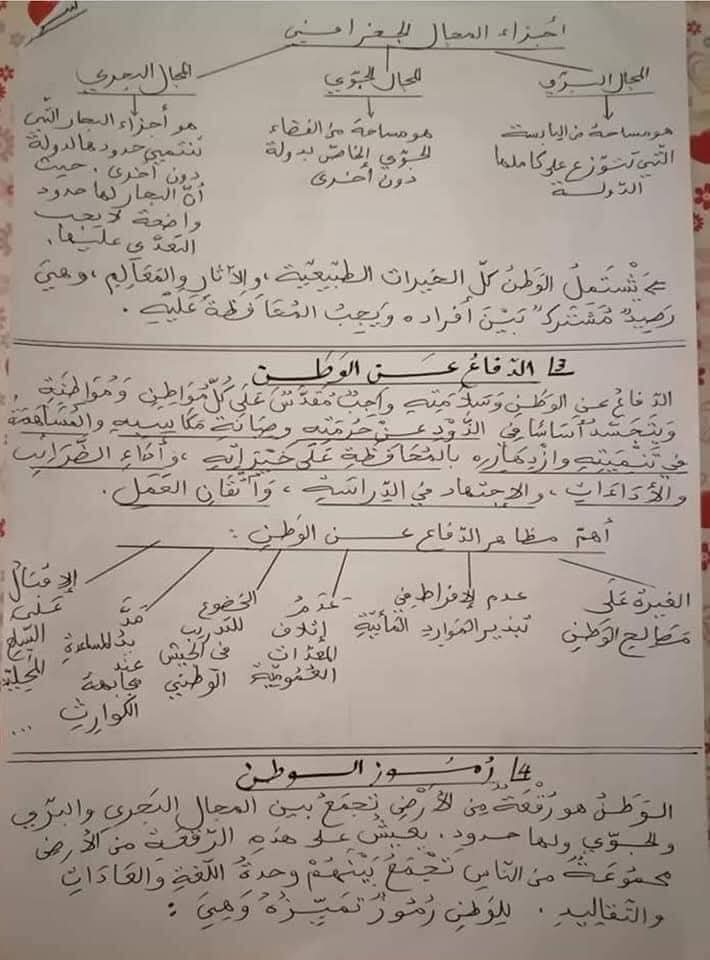 أجزاء المجال الجغرافي
المجال البرّي
هو مساحة من اليابسة
التّي تتوزع على كاملها
الدّولة
المجال الجوّي
هو مساحة من الفضاء
الجوّي الخاصّ بدولة
دون أخرى
المجال البحري
هو أجزاء البحار التّي
تنتمي حدودها لدولة
دون أخرى. حيث
أنّ البحار لها حدود
واضحة لا يجب
التعدّي عليها.
⇐ يَشْتَمِلُ الوَطَنُ كلّ الخيرات الطّبيعيّة، والآثار والمَعَالِم، وهيَ
رَصِيدٌ مُشْتَركٌ بَيْنَ أفراده وَيَجِبُ المُحَافَظَةُ عَلَيْهِ.
3/ الدّفاعُ عَن الوَطَن
الدّفاعُ عنِ الوَطَنِ وَسَلاَمَتِهِ وَاجِبٌ مُقَدَّسٌ عَلَى كُلِّ مُوَاطِنٍ وَمُوَاطِنَةٍ
وَيَتَجَسَّدُ أسَاسًا فِي الذَّوْدِ عَنْ حُرْمَتِهِ وصِيَانَةِ مَكَاسِبِهِ والمُسَاهَمَةُ
فِي تَنْمِيَتِهِ وازْدِهَارِهِ بالمُحَافَظَةِ عَلَى خَيْرَاتِهِ، وأَدَاءِ الضَّرَائِبِ
والأَدَاءَاتِ، والإجتهاد فِي الدِّرَاسَةِ، وَاتْقَانِ العَمَلِ.
أهمّ مظاهر الدّفاع عَن الوَطَنِ:
الغيرة عَلَى
مَصَالِحِ الوَطَنِ
عدم الإفراط في
تبذير المَوَارِدِ المَائِيَّةِ
عَدَمُ
إتلاف
المعدّات
العُمُوميّة
الخضوع
للتّدريب
في الجيش
الوطني
مَدَّ
يد المساعدة
عند
مجابهة
الكوارث
الإقبال
عَلَى
السّلع
المحليّة
...
4/ رُمُوز الوطن
الوَطَنُ هو رُقْعَةٌ مِنَ الأَرْضِ تَجمَعُ بين المجال البَحري والبرّي
والجوّي ولها حدود. يعيشُ على هذهِ الرّقْعَةِ من الأرض
مجموعَةٌ منَ النّاسِ تَجْمَعُ بَيْنَهُمْ وحدةُ اللّغةِ والعَادَاتِ
والتّقاليدِ. لِلوَطَنِ رُمُوزٌ تُمَيِّزُهُ وَهِيَ: